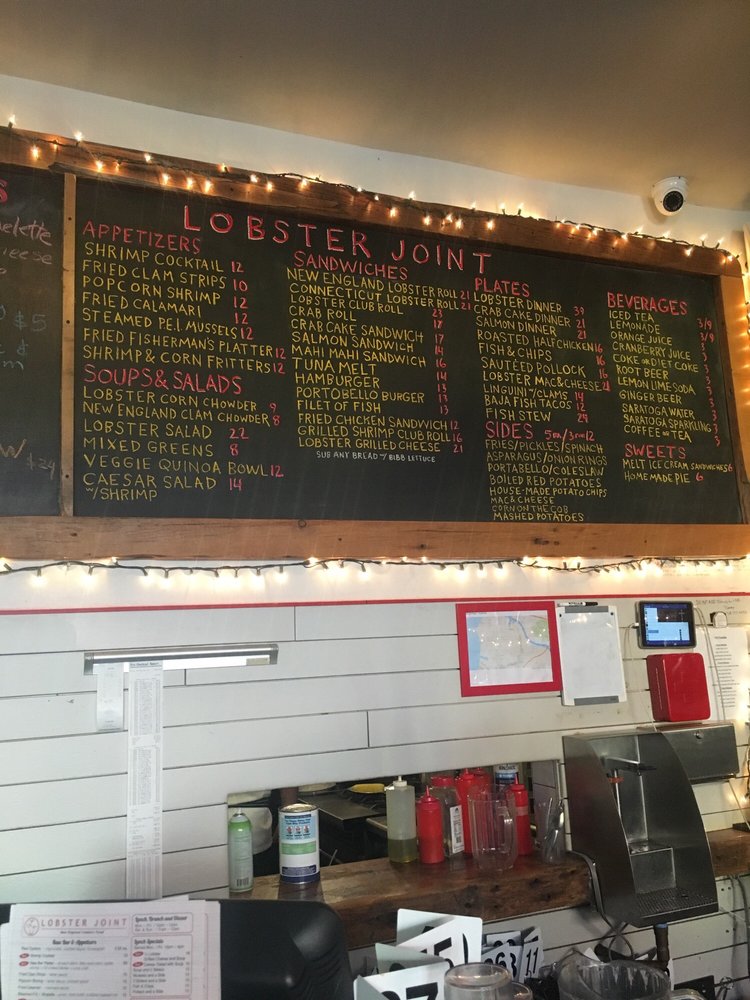 LOBSTER JOINT
APPETIZERS
SHRIMP COCKTAIL 12
FRIED CLAM STRIPS 10
POPCORN SHRIMP 12
FRIED CALAMARI 12
STEAMED P.E.I. MUSSELS 12
FRIED FISHERMAN'S PLATTER 12
SHRIMP & CORN FRITTERS 12
SOUPS & SALADS
LOBSTER CORN CHOWDER 9
NEW ENGLAND CLAM CHOWDER 8
LOBSTER SALAD 22
MIXED GREENS 8
VEGGIE QUINOA BOWL 12
CAESAR SALAD 14
W/SHRIMP
SANDWICHES
NEW ENGLAND LOBSTER ROLL 21
CONNECTICUT LOBSTER ROLL 21
LOBSTER CLUB ROLL 23
CRAB ROLL 18
CRAB CAKE SANDWICH 17
SALMON SANDWICH 14
MAHI MAHI SANDWICH 16
TUNA MELT 14
HAMBURGER 14
PORTOBELLO BURGER 13
FILET OF FISH 13
FRIED CHICKEN SANDWICH 12
GRILLED SHRIMP CLUB ROLL 16
LOBSTER GRILLED CHEESE 21
SUB ANY BREAD W/ BIBB LETTUCE
PLATES
LOBSTER DINNER 39
CRAB CAKE DINNER 21
SALMON DINNER 21
ROASTED HALF CHICKEN 16
FISH & CHIPS 16
SAUTÉED POLLOCK 16
LOBSTER MAC & CHEESE 21
LINGUINI/CLAMS 14
BAJA FISH TACOS 12
FISH STEW 24
SIDES 5EA/3FOR12
FRIES/PICKLES/SPINACH
ASPARAGUS/ONION RINGS
PORTABELLO/COLESLAW
BOILED RED POTATOES
HOUSE-MADE POTATO CHIPS
MAC & CHEESE
CORN ON THE COB
MASHED POTATOES
BEVERAGES
ICED TEA 3/9
LEMONADE 3/9
ORANGE JUICE 3
CRANBERRY JUICE 3
COKE OR DIET COKE 3
ROOT BEER 3
LEMON LIME SODA 3
GINGER BEER 3
SARATOGA WATER 3
SARATOGA SPARKLING 3
COFFEE OR TEA 3
SWEETS
MELT ICE CREAM SANDWICHES 6
HOMEMADE PIE 6
$5
$24
LOBSTER JOINT
Raw Bar & Appetizers
Lunch, Brunch and Dinner
Lunch Specials
11